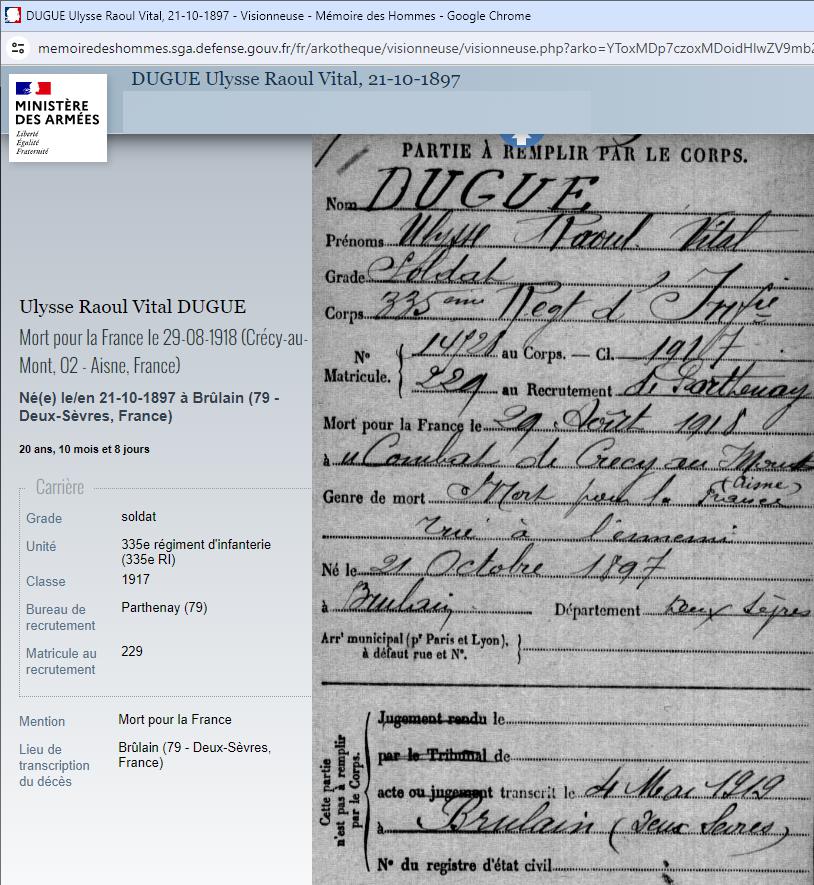 DUGUE Ulysse Raoul Vital, 21-10-1897 - Visionneuse - Mémoire des Hommes - Google Chrome
memoiredeshommes.sga.defense.gouv.fr/fr/arkotheque/visionneuse/visionneuse.php?arko=YToxMDp7czoxMDoidHlwZV9mb2
DUGUE Ulysse Raoul Vital, 21-10-1897
MINISTÈRE
DES ARMÉES
Liberté
Égalité
Fraternité
Ulysse Raoul Vital DUGUE
Mort pour la France le 29-08-1918 (Crécy-au-
Mont, 02 - Aisne, France)
Né(e) le/en 21-10-1897 à Brûlain (79 -
Deux-Sèvres, France)
20 ans, 10 mois et 8 jours
Carrière
Grade soldat
Unité 335e régiment d'infanterie
(335e RI)
Classe 1917
Bureau de recrutement Parthenay (79)
Matricule au recrutement 229
Mention Mort pour la France
Lieu de transcription du décès Brûlain (79 - Deux-Sèvres, France)
PARTIE À REMPLIR PAR LE CORPS.
Nom DUGUE
Prénoms Ulysse Raoul Vital
Grade Soldat
Corps 335 eme Regt d' Infie
N° Matricule. 14121 au Corps. — Cl. 1917
229 au Recrutement de Parthenay
Mort pour la France le 29 Août 1918
à u Combat de Crecy au Mont
(Aisne)
Genre de mort Mort pour la France
tué à l'ennemi
Né le 21 Octobre 1897
à Brulain Département Deux Sèvres
Arrt municipal (pr Paris et Lyon),
à défaut rue et N°.
Cette partie
n'est pas à remplir
par le Corps.
Jugement rendu le
par le Tribunal de
acte ou jugement transcrit le 4 Mai 1919
à Brulain (Deux Sevres)
N° du registre d'état civil